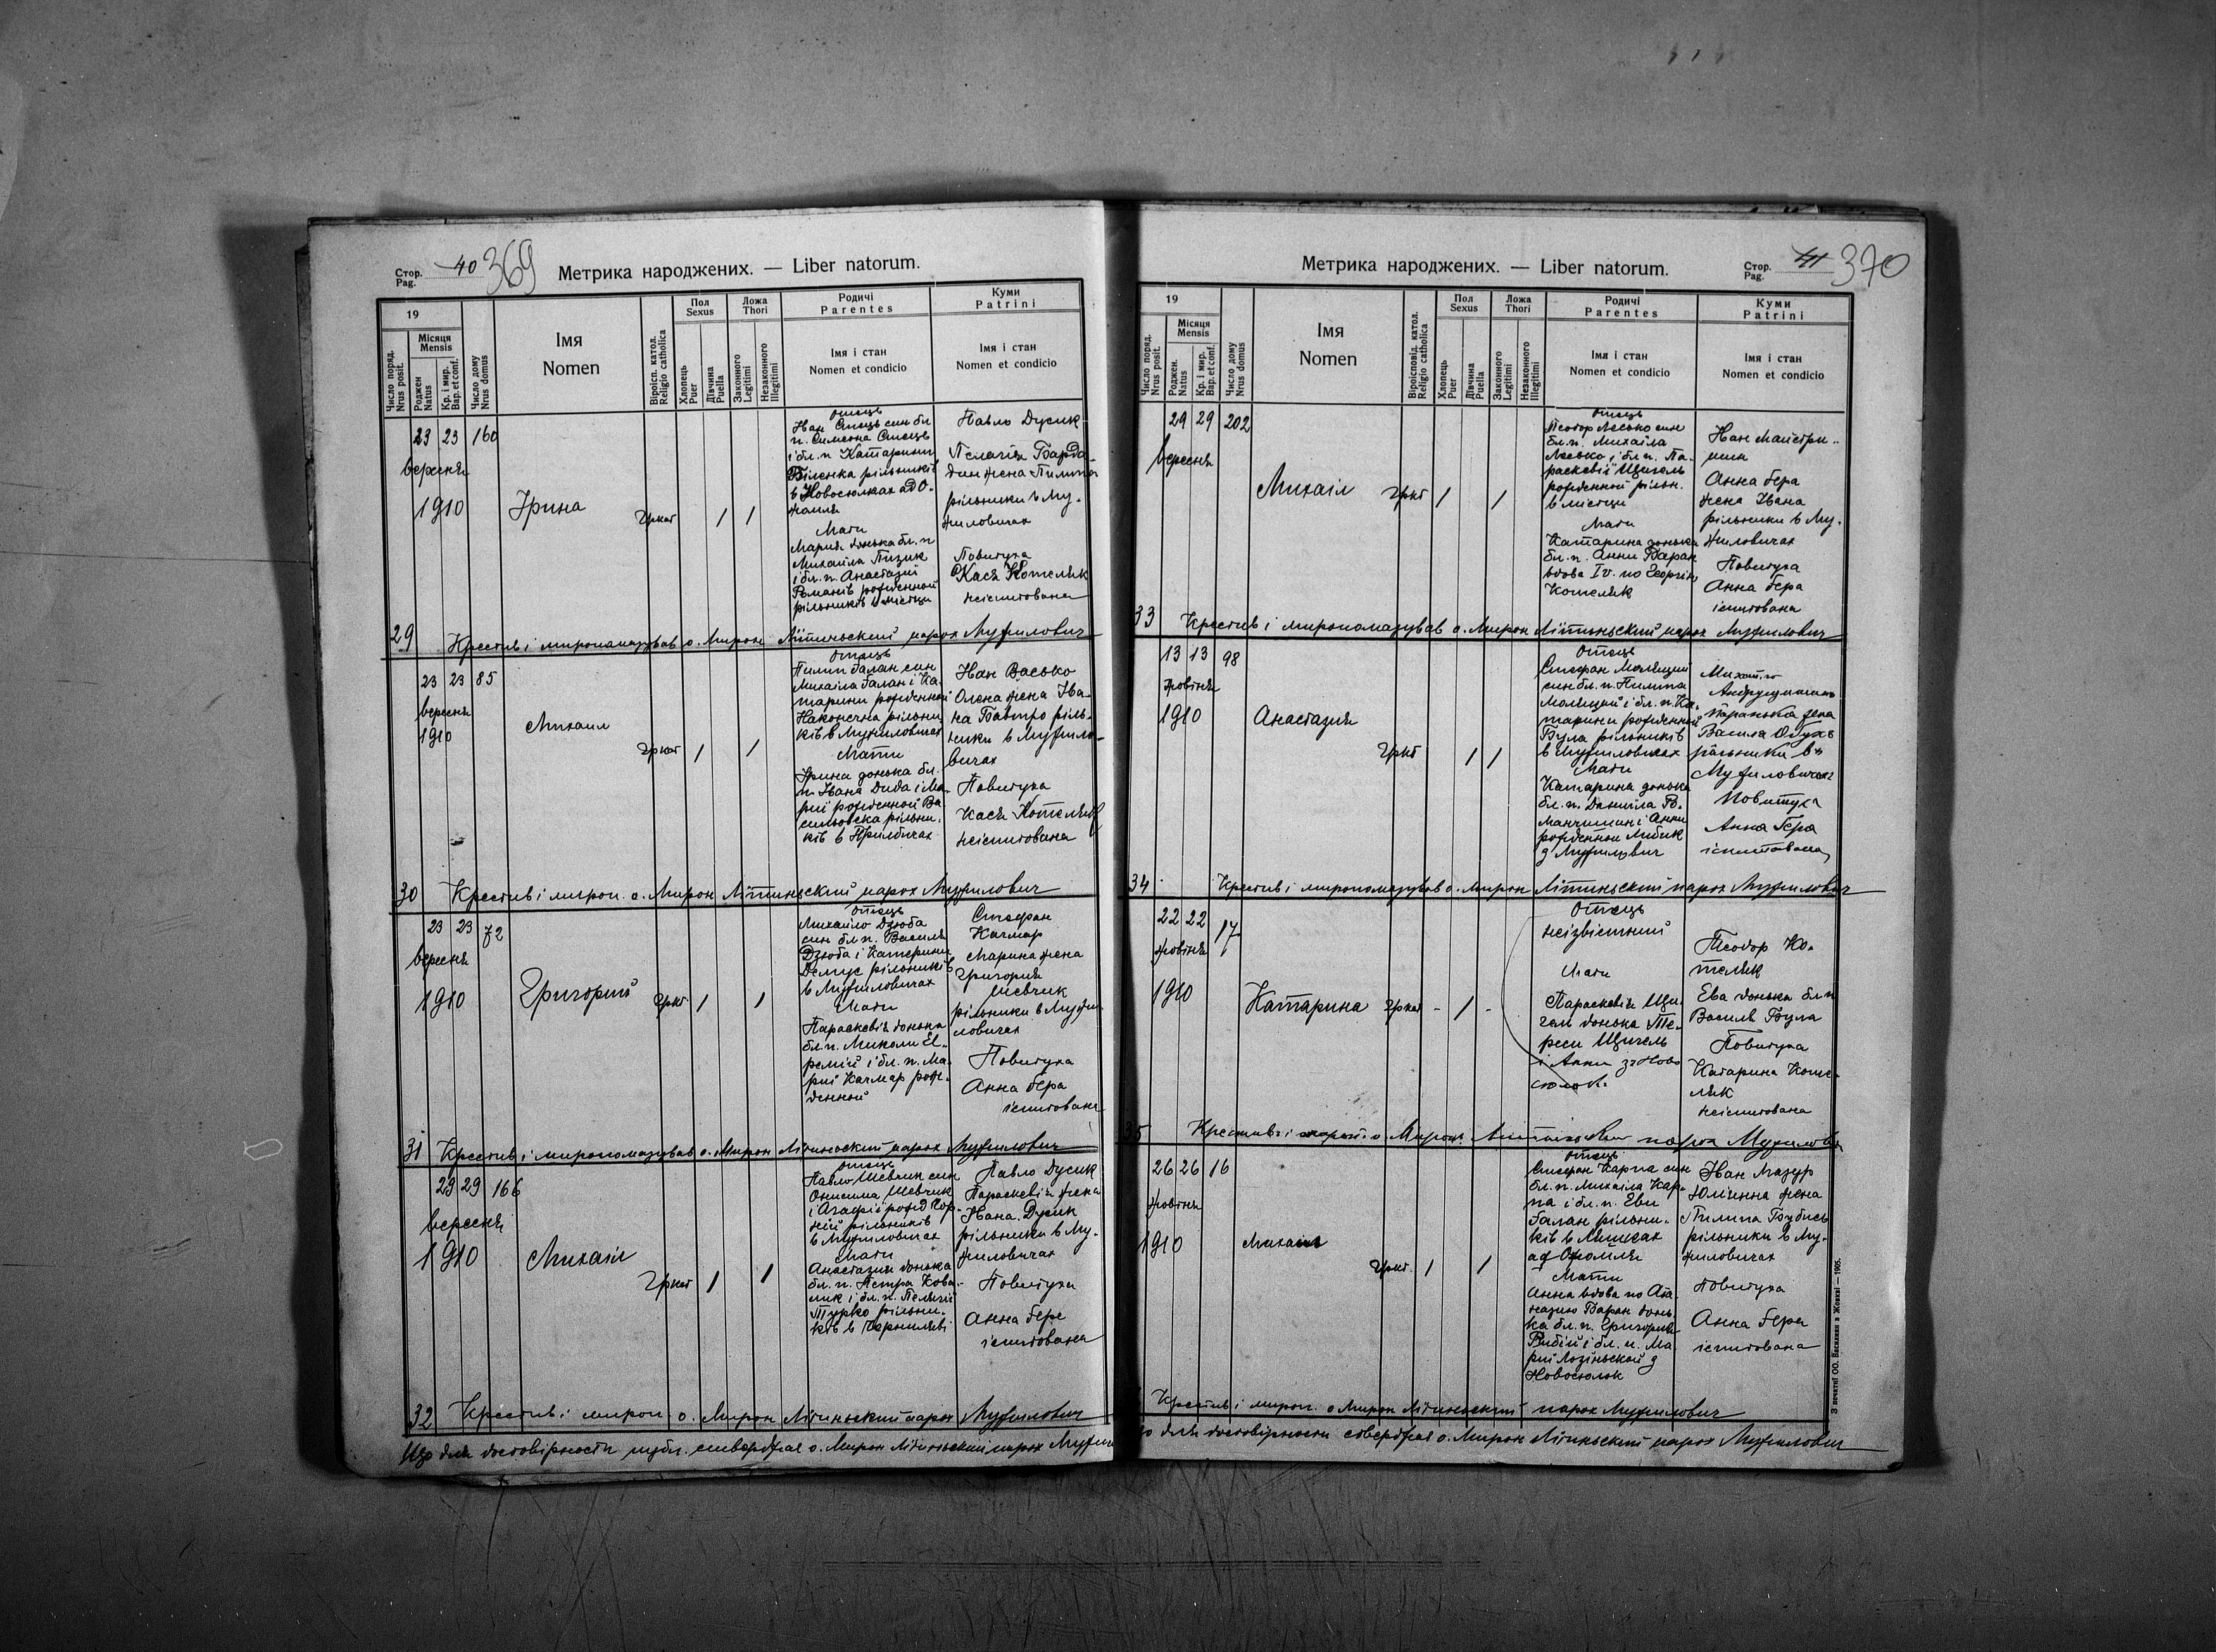 Стор. Pag. 40 369
Метрика народжених. — Liber natorum.
19
Місяця Mensis
Число поряд. Nrus posit.
Роджен Natus
Кр. і мир. Bap. et conf.
Число дому Nrus domus
Імя
Nomen
Віроісп. катол. Religio catholica
Пол Sexus
Хлопець Puer
Дівчина Puella
Ложа Thori
Законного Legitimi
Незаконного Illegitimi
Родичі
Parentes
Імя і стан
Nomen et condicio
Куми
Patrini
Імя і стан
Nomen et condicio
23 23 160
вересня
1910
Ірина
Гркат
1 1
Отець
Іван Стець син бл
п. Симеона Стець
і бл. п Катарини
Віленка рільників
в Новосюлках ад О-
жомля
Мати
Мария донька бл. п
Михаіла Пизик
і бл. п. Анастазиі
Романів рожденной
рільників в місци
Павло Дусик
Пелагія Барда-
дин жена Пилипа
рільники в Му-
жиловичах
Повитуха
Кася Котелик
неіспитована
29 Крестив і миропомазував о. Мирон Літиньский парох Мужилович
23 23 85
вересня
1910
Михаил
Гркат
1 1
Отець
Пилип Галан син
Михаіла Галан і Ка-
тарини рожденной
Наконечна рільни
ків в Мужиловичах
Мати
Ірина донька бл.
п. Івана Дида і Ма-
риі рожденной Ва
сильовска рільни-
ків в Прилбичах
Іван Васько
Олена жена Іва-
на Бавтро ріль-
ники в Мужило-
вичах
Повитуха
Кася Котелик
неіспитована
30 Крестив і мироп. о. Мирон Літиньский парох Мужилович
23 23 72
вересня
1910
Григорий
Гркт
1 1
Отець
Михайло Дзюба
син бл п. Василя
Дзюба і Катерини
Демус рільників
в Мужиловичах
Мати
Параскевія донька
бл. п. Миколи Ев-
ремій і бл. п. Ма-
риі Качмар рож-
денной
Стефан
Качмар
Марина жена
Григория
Шевчик
рільники в Мужи-
ловичах
Повитуха
Анна Гера
іспитована
31 Крестив і миропомазував о. Мирон Літиньский парох Мужилович
29 29 166
вересня
1910
Михаіл
Гркат
1 1
Отець
Павло Шевчик син
Онисима Шевчик
і Агафіі рожд Кор-
ній рільників
в Мужиловичах
Мати
Анастазия донька
бл. п. Петра Кова-
лик і бл. п. Пелагіі
Турко рільни-
ків в Черниляві
Павло Дусик
Параскевія жена
Івана Дусик
рільники в Му-
жиловичах
Повитуха
Анна Гера
іспитована
32 Крестив і мироп о. Мирон Літиньский парох Мужилович
Що для достовірности публ. стверджая о. Мирон Літиньский парох Мужил
Метрика народжених. — Liber natorum.
Стор. Pag. 41 370
19
Місяця Mensis
Число поряд. Nrus posit.
Роджен. Natus
Кр. і мир. Bap. et conf.
Число дому Nrus domus
Імя
Nomen
Віроісповід. катол. Religio catholica
Пол Sexus
Хлопець Puer
Дівчина Puella
Ложа Thori
Законного Legitimi
Незаконного Illegitimi
Родичі
Parentes
Імя і стан
Nomen et condicio
Куми
Patrini
Імя і стан
Nomen et condicio
29 29 202
вересня
Михаіл
Гркт
1 1
Отець
Теодор Лесько син
бл. п. Михаіла
Лесько і бл. п. Па-
раскевіі Щигель
рожденной рільн.
в місци
Мати
Катарина донька
бл. п. Анни Баран
вдова Iv. по Георгію
Котелик
Іван Майстри-
шин
Анна Гера
жена Івана
рільники в Му-
жиловичах
Повитуха
Анна Гера
іспитована
33 Крестив і миропомазував о. Мирон Літиньский парох Мужилович
13 13 98
жовтня
1910
Анастазия
Гркт
1 1
Отець
Стефан Малицкий
син бл. п. Пилипа
Малицкий і бл. п. Ка-
тарини рожденной
Була рільників
в Мужиловичах
Мати
Катарина донька
бл. п. Даниіла
і Анни
рожденной Либик
з Мужилович
Паранька жена
Василя
рільники в
Мужиловичах
Повитуха
Анна Гера
іспитована
34 Крестив і миропомазував о. Мирон Літиньский парох Мужилович
22 22 17
жовтня
1910
Катарина
Гркат
- 1 -
Отець
неізвістний
Мати
Параскевія Щи-
гель донька Те-
реси Щигель
і Анни з Ново
сюлок
Теодор Ко-
телик
Ева донька бл п
Василя Була
Повитуха
Катарина Коте-
лик
неіспитована
35 Крестив і мироп. о. Мирон Літиньский парох Мужилович
26 26 16
жовтня
1910
Михаил
Гркт.
1 1
Отець
Стефан Карпа син
бл. п. Михаіла Кар-
па і бл. п. Еви
Галан рільни-
ків в Мишках
ад Ожомля
Мати
Анна вдова по Ата-
назию Баран донь-
ка бл. п. Григория
Рибій і бл. п. Ма-
риі Лозіньской з
Новосюлок
Іван Мазур
Юлиянна жена
Пилипа Бубись
рільники в Му-
жиловичах
Повитуха
Анна Гера
іспитована
Крестив і мироп. о Мирон Літиньский парох Мужилович
о для достовірности стверджая о. Мирон Літиньский парох Мужилович
З печатні ОО. Василиян в Жовкві — 1905.